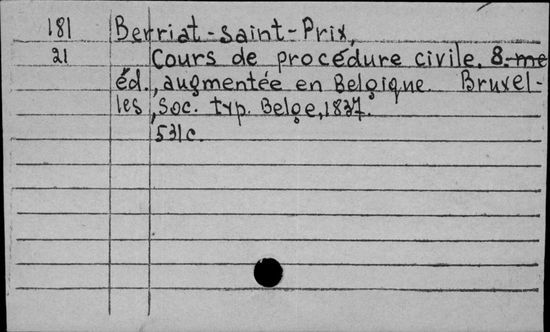 181 Berriat-saint-Prix,
21 Cours de procédure civile. 8.-me
éd., augmentée en Belgique. Bruxel-
les, Soc. typ. Belge, 1837.
531c.